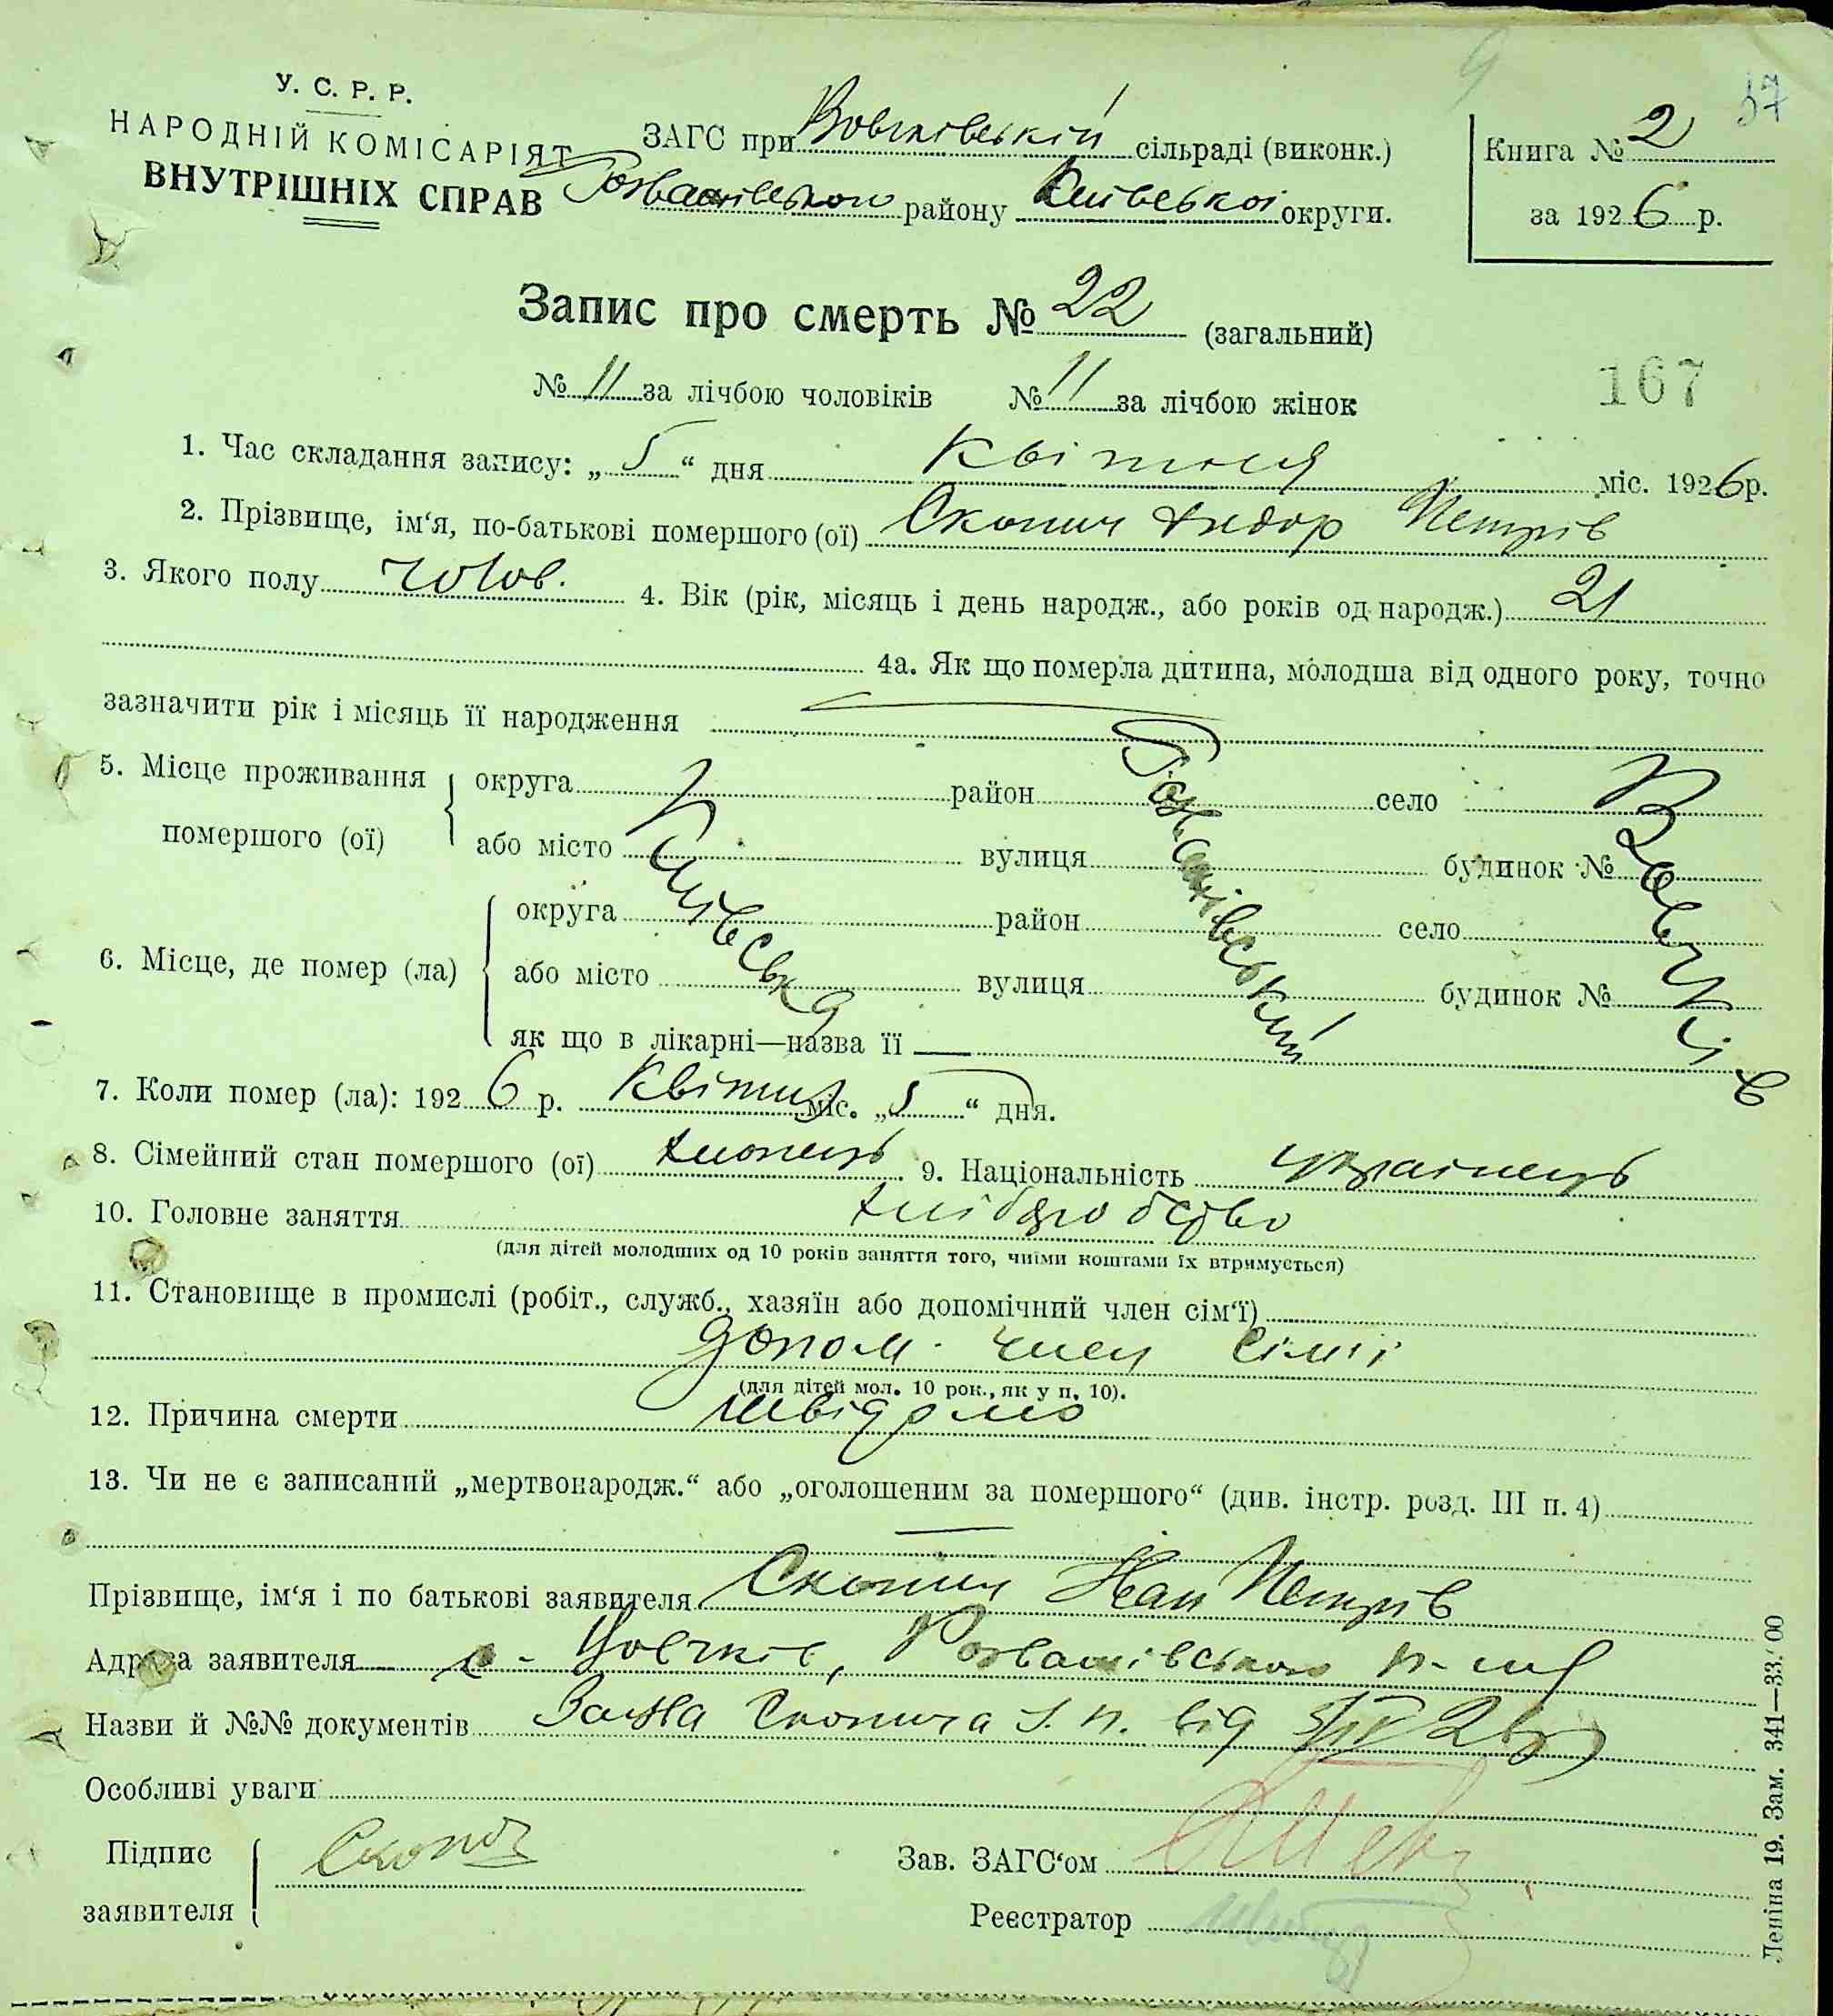 37
У. С. Р. Р.
НАРОДНІЙ КОМІСАРІЯТ
ВНУТРІШНІХ СПРАВ
ЗАГС при Вовчківській сільраді (виконк.)
Розважівського району Київської округи.
Книга № 2
за 1926 р.
Запис про смерть № 22 (загальний)
№ 11 за лічбою чоловіків № 11 за лічбою жінок
167
1. Час складання запису: „ 5 “ дня Квітня міс. 1926р.
2. Прізвище, ім‘я, по-батькові помершого (ої) Скопич Хведор Петрів
3. Якого полу чолов. 4. Вік (рік, місяць і день народж., або років од народж.) 21
4а. Як що померла дитина, молодша від одного року, точно
зазначити рік і місяць її народження
5. Місце проживання помершого (ої) { округа Київська район Розважівський село Вовчків
або місто вулиця будинок №
6. Місце, де помер (ла) { округа район село
або місто вулиця будинок №
як що в лікарні—назва її —
7. Коли помер (ла): 1926 р. Квітня міс. „ 5 “ дня.
8. Сімейний стан помершого (ої) хлопець 9. Національність українець
10. Головне заняття хліборобство
(для дітей молодших од 10 років заняття того, чиїми коштами їх втримується)
11. Становище в промислі (робіт., служб., хазяїн або допомічний член сім‘ї)
допом. член сім'ї
(для дітей мол. 10 рок., як у п. 10).
12. Причина смерти невідомо
13. Чи не є записаний „мертвонародж.“ або „оголошеним за помершого“ (див. інстр. розд. III п. 4)
—
Прізвище, ім‘я і по батькові заявителя Скопич Іван Петрів
Адреса заявителя с. Вовчків, Розважівського р-ну
Назви й №№ документів Заява Скопича І. П. від 5/IV 26р
Особливі уваги
Підпис заявителя { Скопич
Зав. ЗАГС‘ом
Реєстратор
Леніна 19. Зам. 341—33.‘00